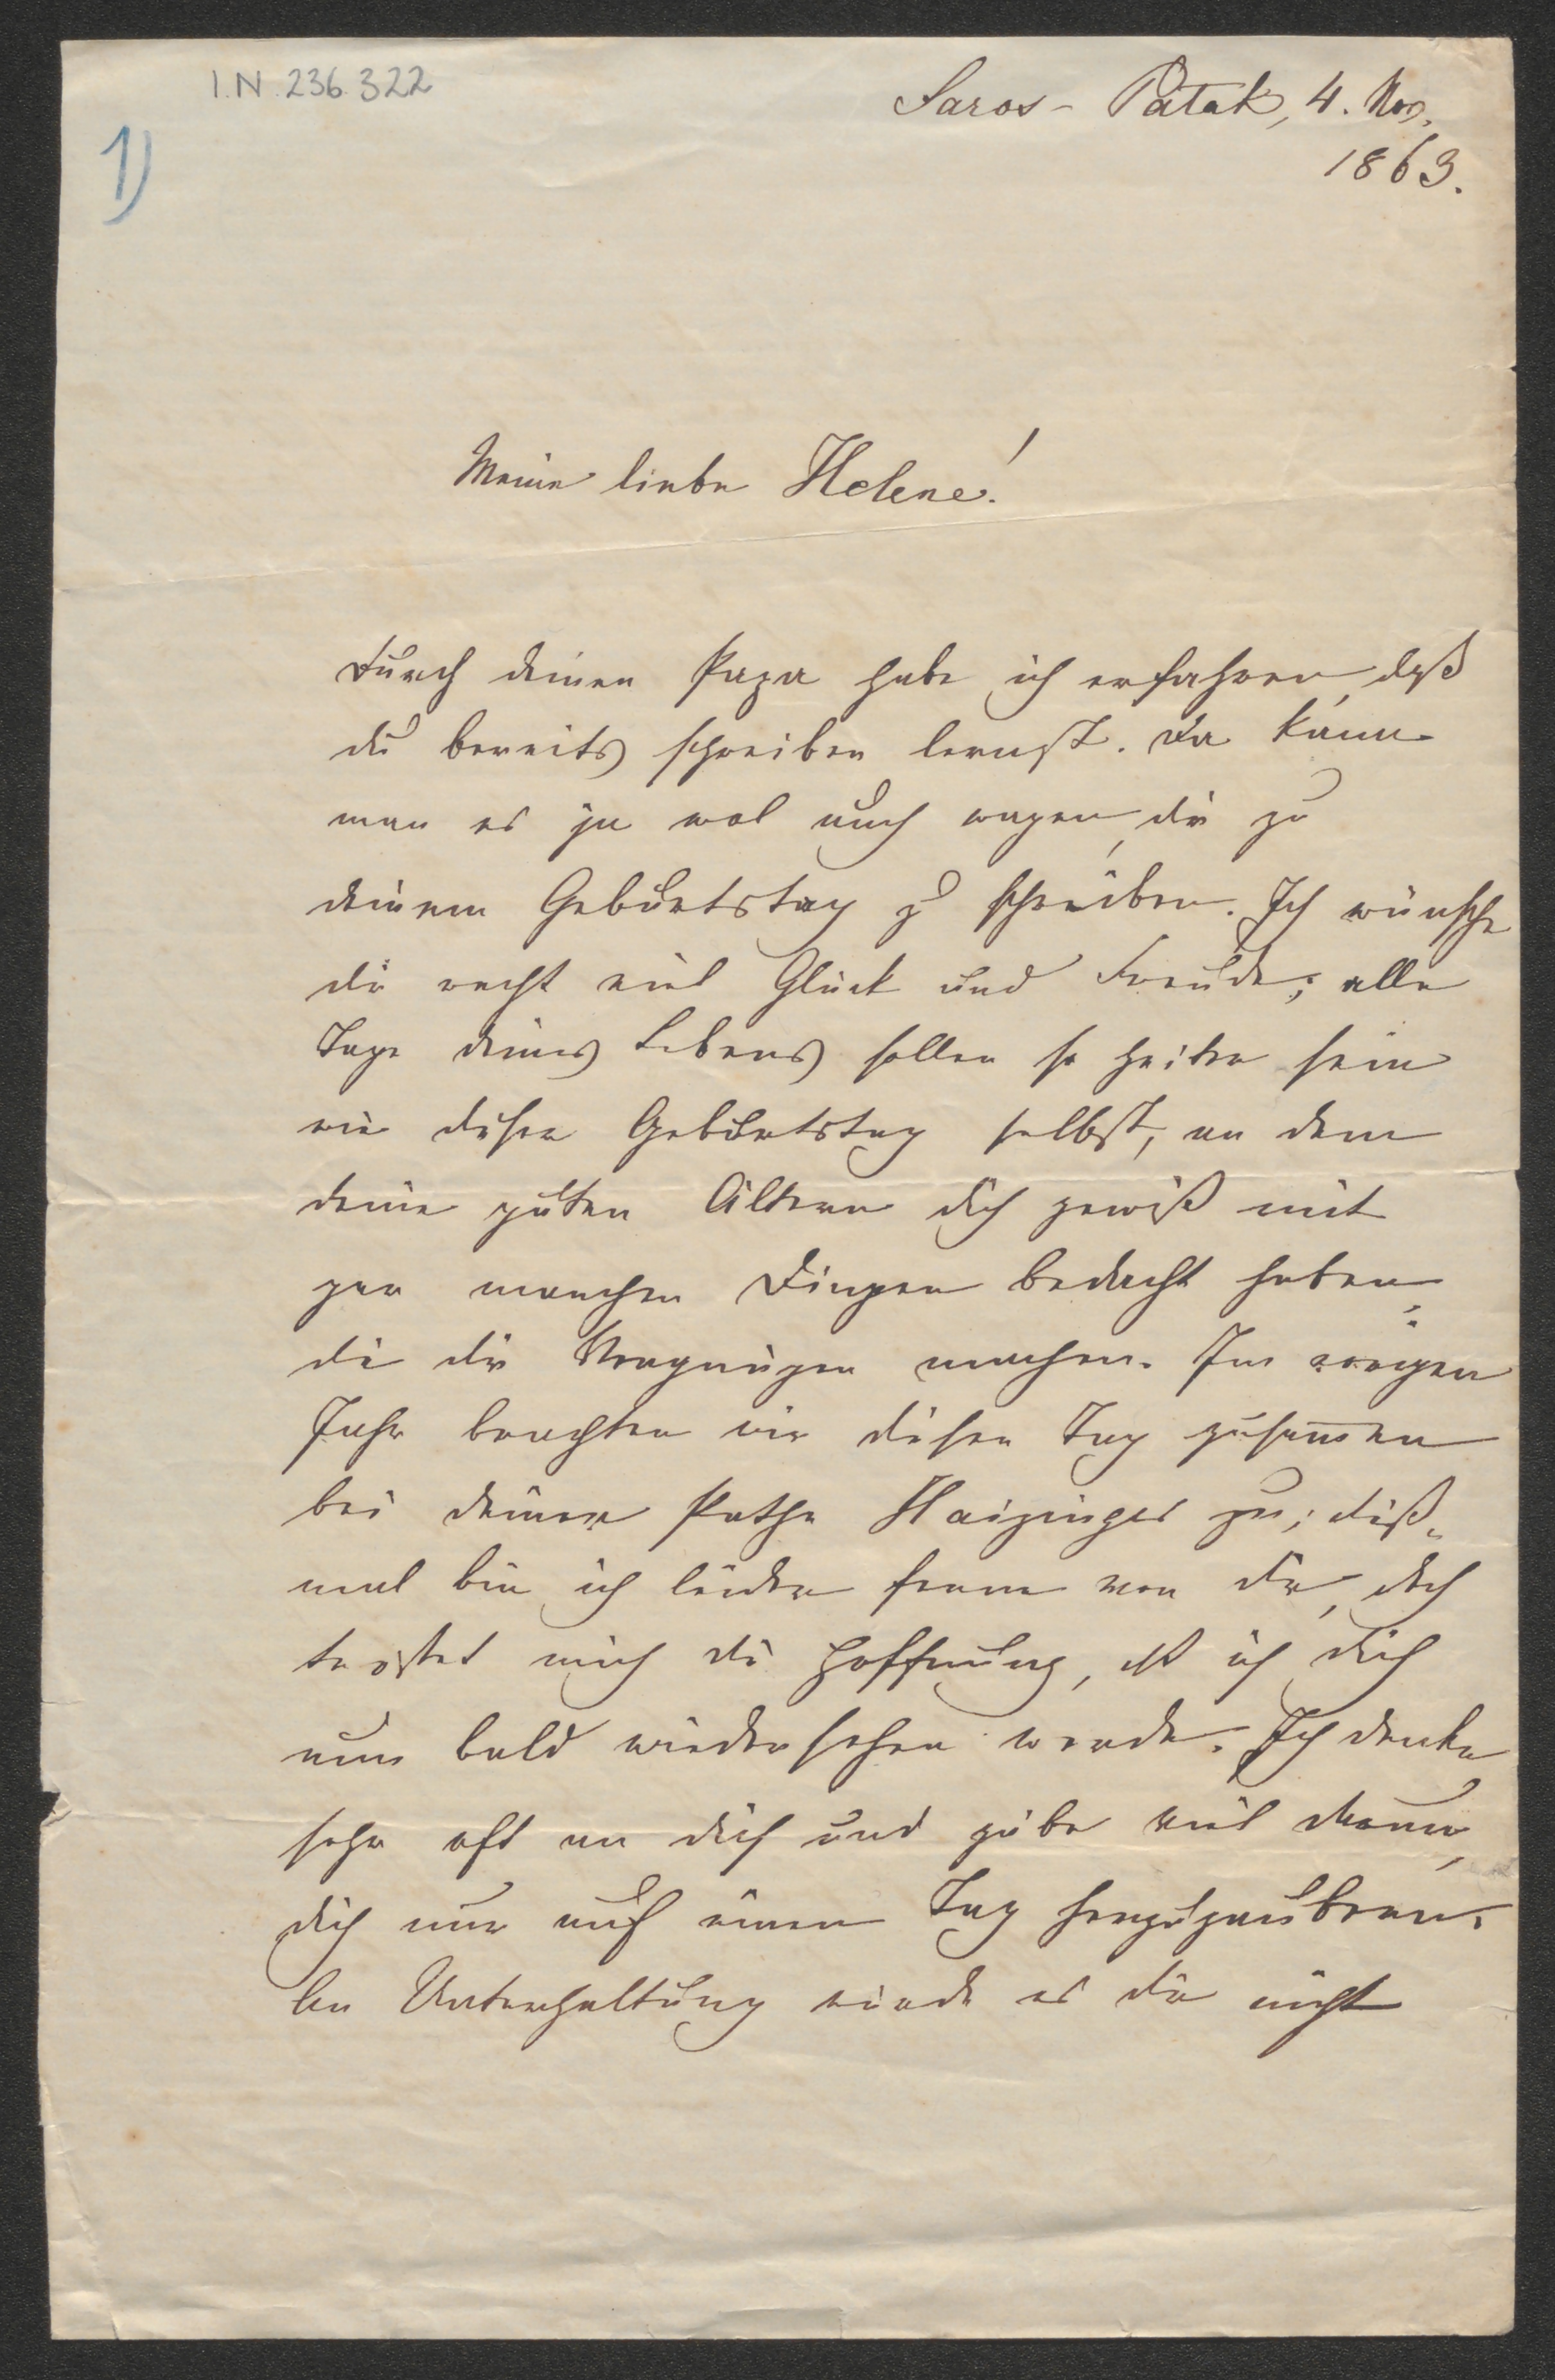 I.N. 236.322
1)
Saros-Patak, 4. Nov.
1863.
Meine liebe Helene!
Durch deinen Papa habe ich erfahren, daß
du bereits schreiben lernst. Da kann
man es ja wol auch wagen, dir zu
deinem Geburtstag zu schreiben. Ich wünsche
dir recht viel Glück und Freude; alle
Tage deines Lebens sollen so heiter sein
wie diser Geburtstag selbst, an dem
deine guten Ältern dich gewiß mit
gar manchen Dingen bedacht haben,
di dir Vergnügen machen. Im vorigen
Jahr brachten wir disen Tag zusam̅en
bei deiner Pathe Haizinger zu; diß„
mal bin ich leider ferne von dir, doch
tröstet mich di Hoffnung, daß ich dich
nun bald wiedersehen werde. Ich denke
sehr oft an dich und gäbe viel darum,
dich nur auf einen Tag herzuzaubern.
An Unterhaltung würde es dir nicht